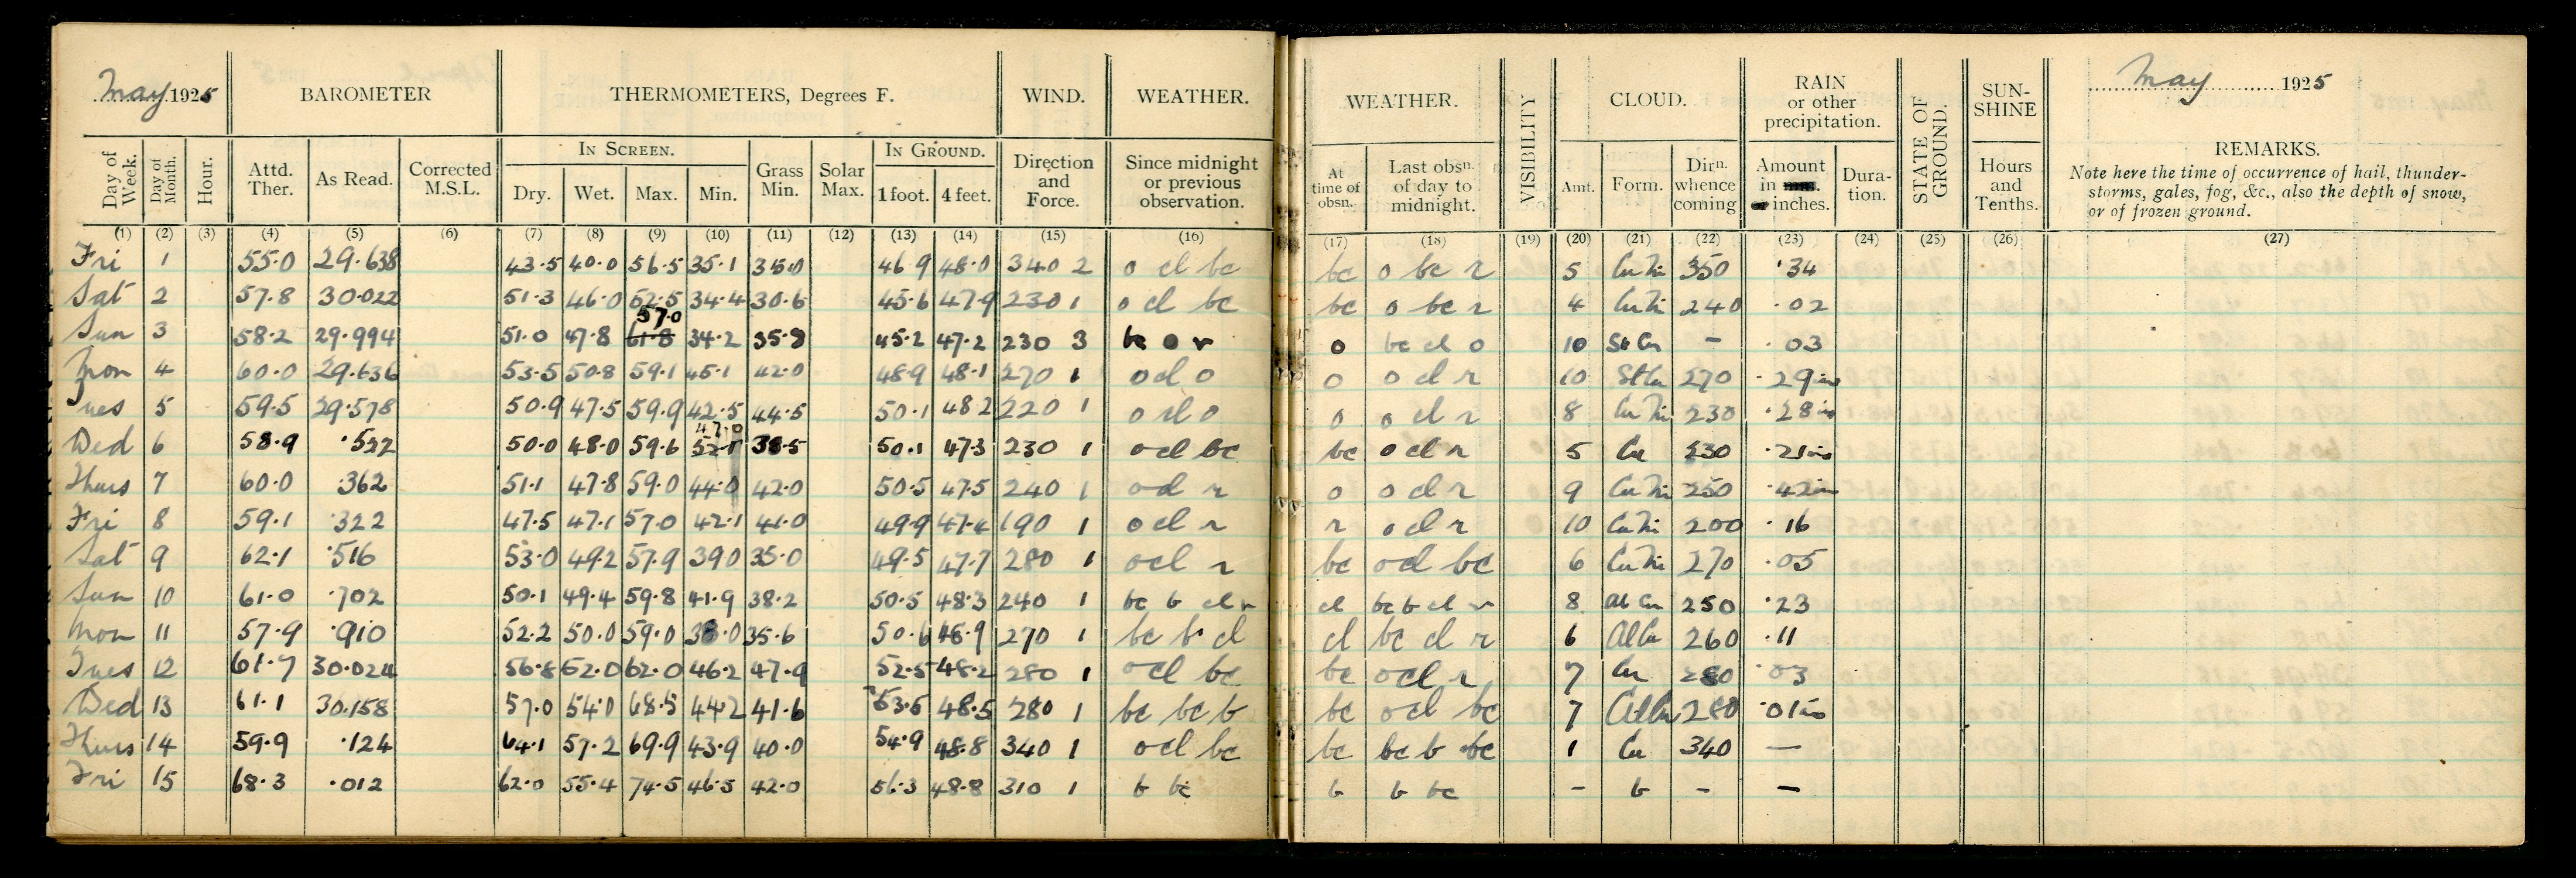 May 1925 BAROMETER THERMOMETERS, Degrees F. WIND. WEATHER.
Day of Week. Day of Month. Hour. Attd. Ther. As Read. Corrected M.S.L. IN SCREEN. Dry. Wet. Max. Min. Grass Min. Solar Max. IN GROUND. 1 foot. 4 feet. Direction and Force. Since midnight or previous observation.
(1) (2) (3) (4) (5) (6) (7) (8) (9) (10) (11) (12) (13) (14) (15) (16)
Fri 1 55.0 29.638 43.5 40.0 56.5 35.1 35.0 46.9 48.0 340 2 o cl bc
Sat 2 57.8 30.022 51.3 46.0 52.5 34.4 30.6 45.6 47.9 230 1 o cl bc
57.0
Sun 3 58.2 29.994 51.0 47.8 61.8 34.2 35.9 45.2 47.2 230 3 bc o r
Mon 4 60.0 29.636 53.5 50.8 59.1 45.1 42.0 48.9 48.1 270 1 o cl o
Tues 5 59.5 29.578 50.9 47.5 59.9 42.5 44.5 50.1 48.2 220 1 o cl o
47.0
Wed 6 58.9 .522 50.0 48.0 59.6 52.1 38.5 50.1 47.3 230 1 o cl bc
Thurs 7 60.0 .362 51.1 47.8 59.0 44.0 42.0 50.5 47.5 240 1 o cl r
Fri 8 59.1 .322 47.5 47.1 57.0 42.1 41.0 49.9 47.4 190 1 o cl r
Sat 9 62.1 .516 53.0 49.2 57.9 39.0 35.0 49.5 47.7 280 1 o cl r
Sun 10 61.0 .702 50.1 49.4 59.8 41.9 38.2 50.5 48.3 240 1 bc b cl r
Mon 11 57.9 .910 52.2 50.0 59.0 38.0 35.6 50.6 48.9 270 1 bc b cl
Tues 12 61.7 30.024 56.8 52.0 62.0 46.2 47.9 52.5 48.2 280 1 o cl bc
Wed 13 61.1 30.158 57.0 54.0 68.5 44.2 41.6 53.5 48.5 280 1 bc bc b
Thurs 14 59.9 .124 64.1 57.2 69.9 43.9 40.0 54.9 48.8 340 1 o cl bc
Fri 15 68.3 .012 62.0 55.4 74.5 46.5 42.0 56.3 48.8 310 1 b bc
WEATHER. VISIBILITY CLOUD. RAIN or other precipitation. STATE OF GROUND. SUN-SHINE May 1925
At time of obsn. Last obsn. of day to midnight. Amt. Form. Dirn. whence coming Amount in mm. or inches. Dura-tion. Hours and Tenths. REMARKS.
Note here the time of occurrence of hail, thunder-
storms, gales, fog, &c., also the depth of snow,
or of frozen ground.
(17) (18) (19) (20) (21) (22) (23) (24) (25) (26) (27)
bc o bc r 5 CuNi 350 .34
bc o bc r 4 CuNi 240 .02
o bc cl o 10 StCu – .03
o o cl r 10 StCu 270 .29 ins
o o cl r 8 CuNi 230 .28 ins
bc o cl r 5 Cu 230 .21 ins
o o cl r 9 CuNi 250 .42 ins
r o cl r 10 CuNi 200 .16
bc o cl bc 6 CuNi 270 .05
cl bc b cl r 8 AlCu 250 .23
cl bc cl r 6 AlCu 260 .11
bc o cl r 7 Cu 280 .03
bc o cl bc 7 AlCu 280 .01 ins
bc bc b bc 1 Cu 340 —
b b bc – b – –